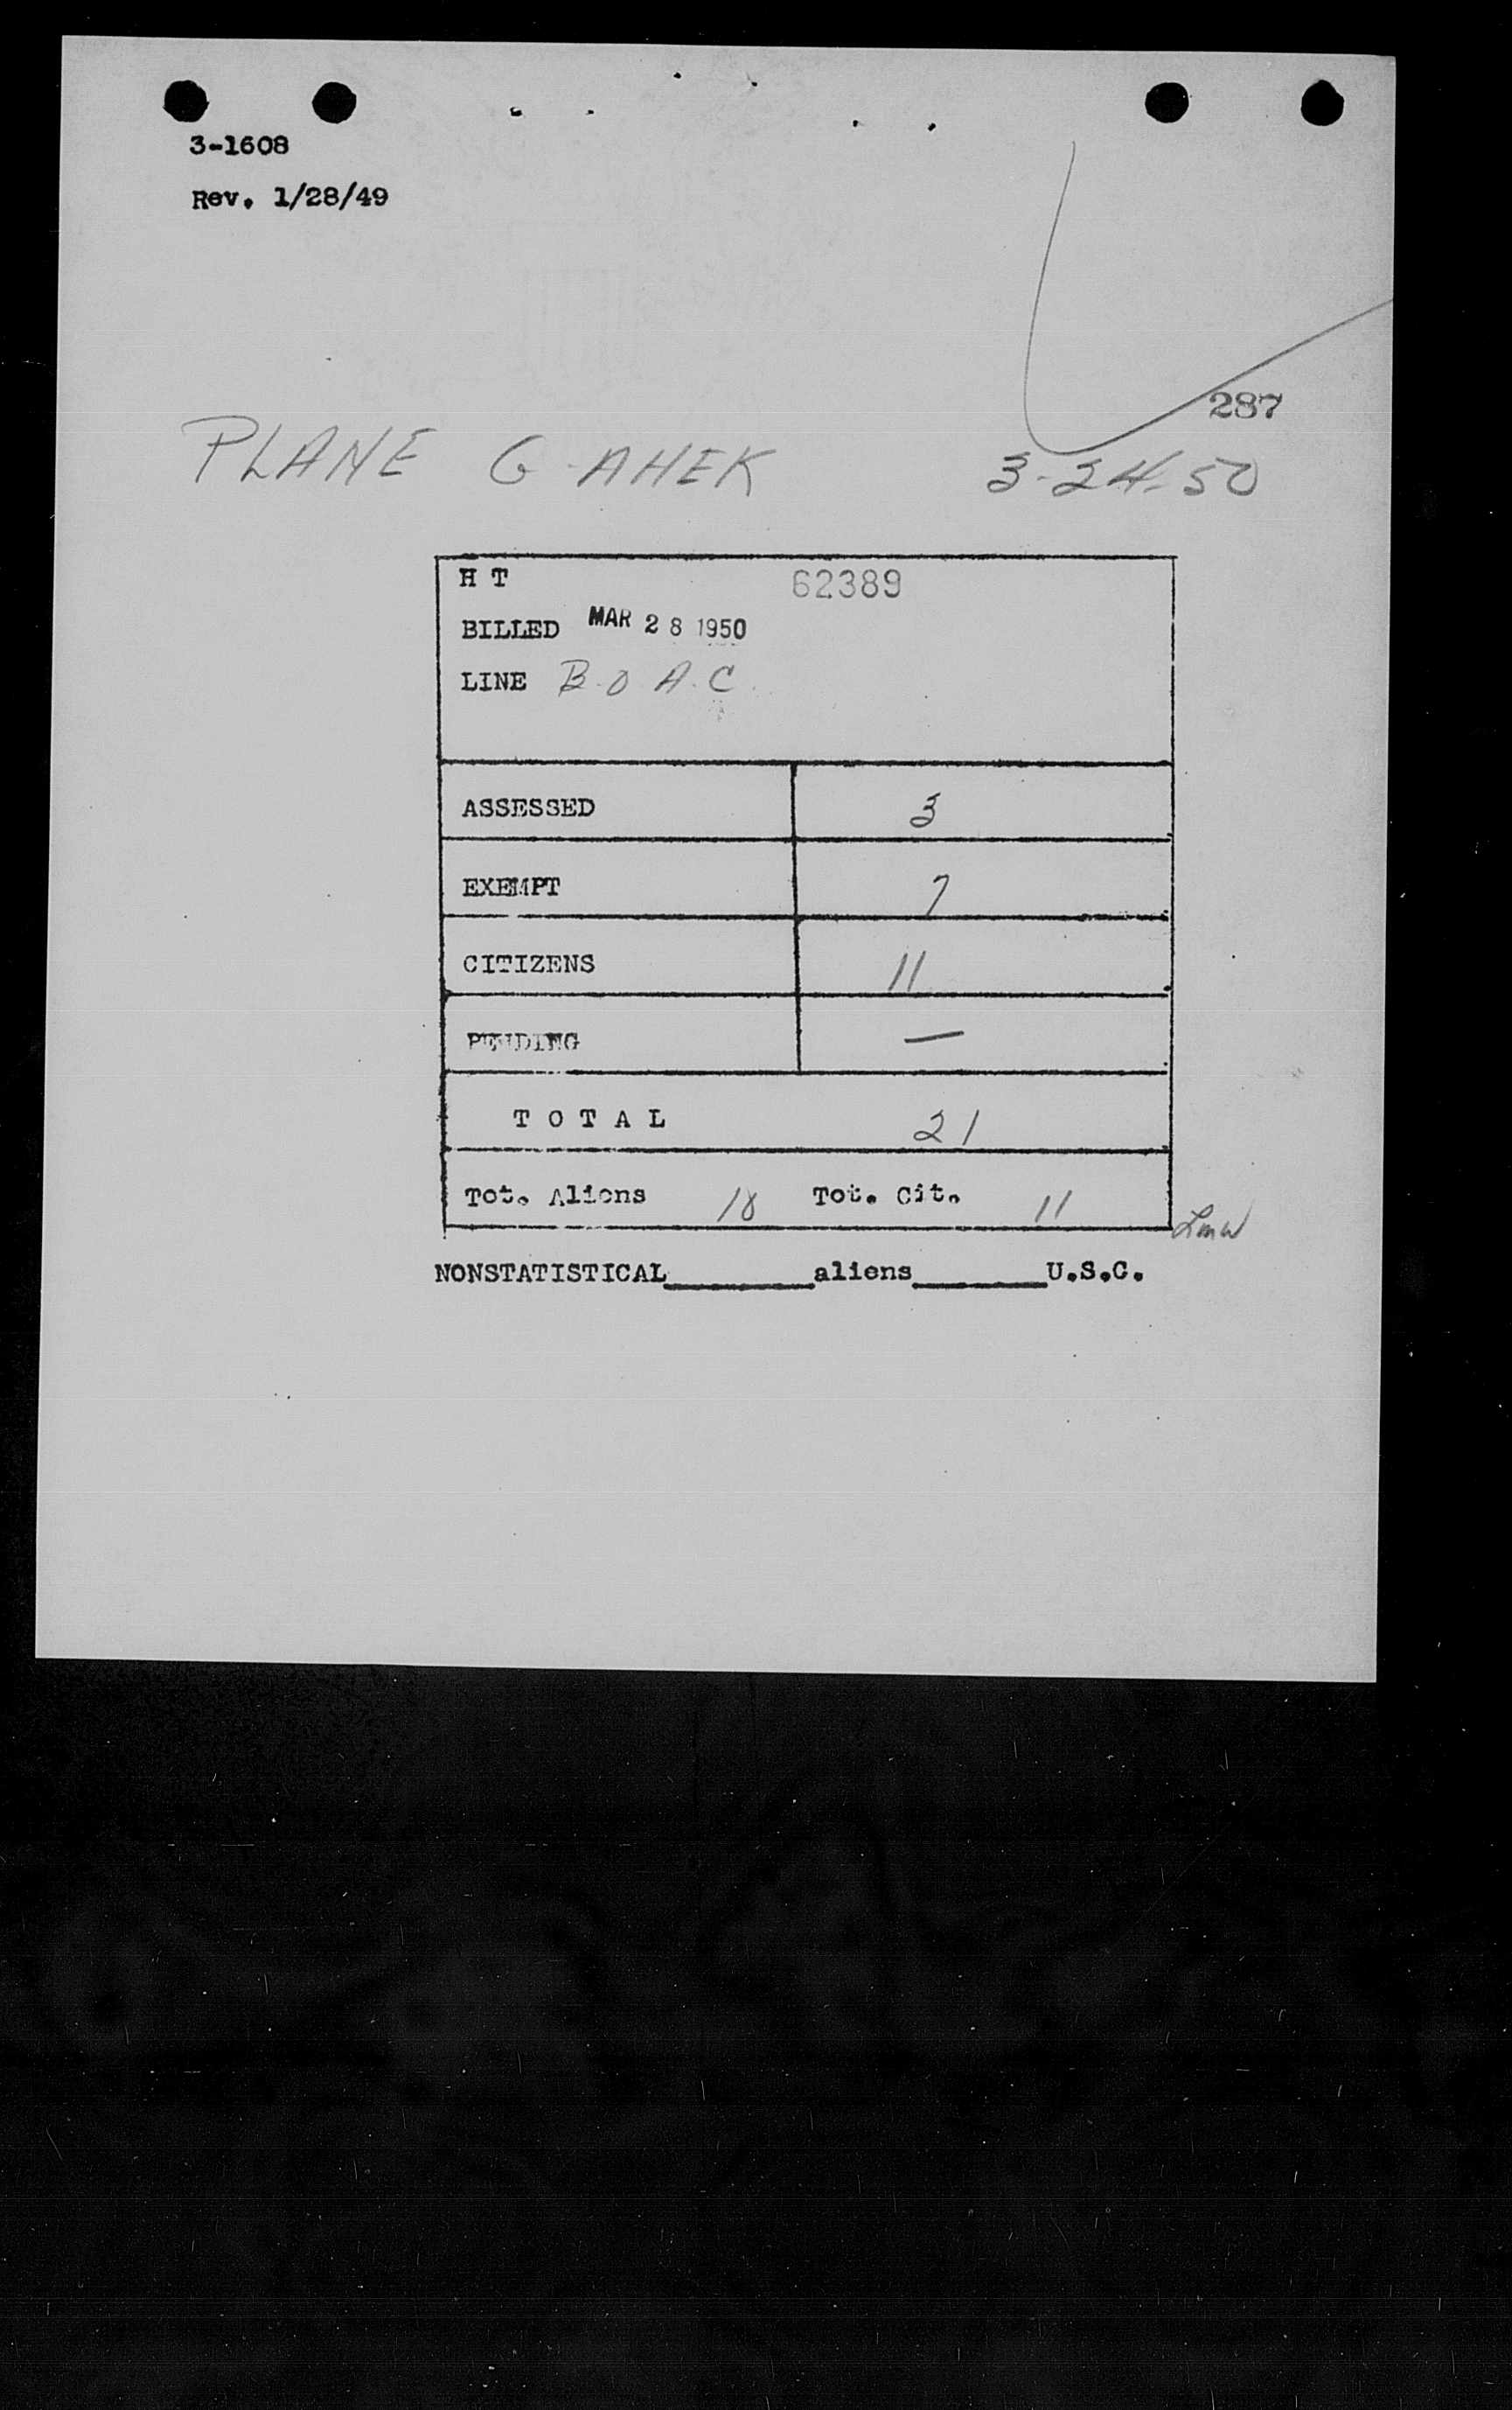 3-1608
Rev. 1/28/49
287
PLANE G-AHEK 3-24-50
H T 62389
BILLED MAR 28 1950
LINE B.O.A.C.
ASSESSED 3
EXEMPT 7
CITIZENS 11
PENDING —
T O T A L 21
Tot. Aliens 10 Tot. Cit. 11
LMW
NONSTATISTICAL________aliens________U.S.C.